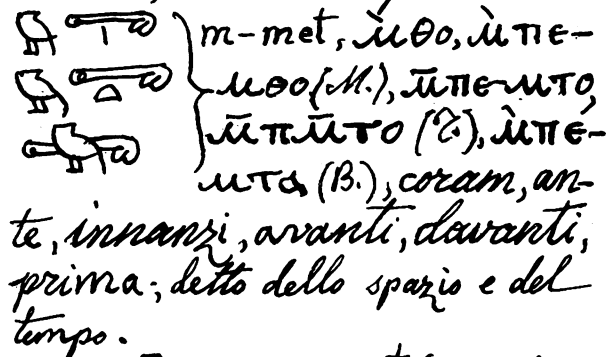 m-met, ⲙ̀ⲑⲟ, ⲙ̀ⲡⲉ-
ⲙⲑⲟ (M.), ⲙ̄ⲡⲉⲙⲧⲟ,
ⲙ̄ⲡⲙ̄ⲧⲟ (T.), ⲙ̀ⲡⲉ̀-
ⲙⲧⲁ (B.), coram, an-
te, innanzi, avanti, davanti,
prima; detto dello spazio e del
tempo.